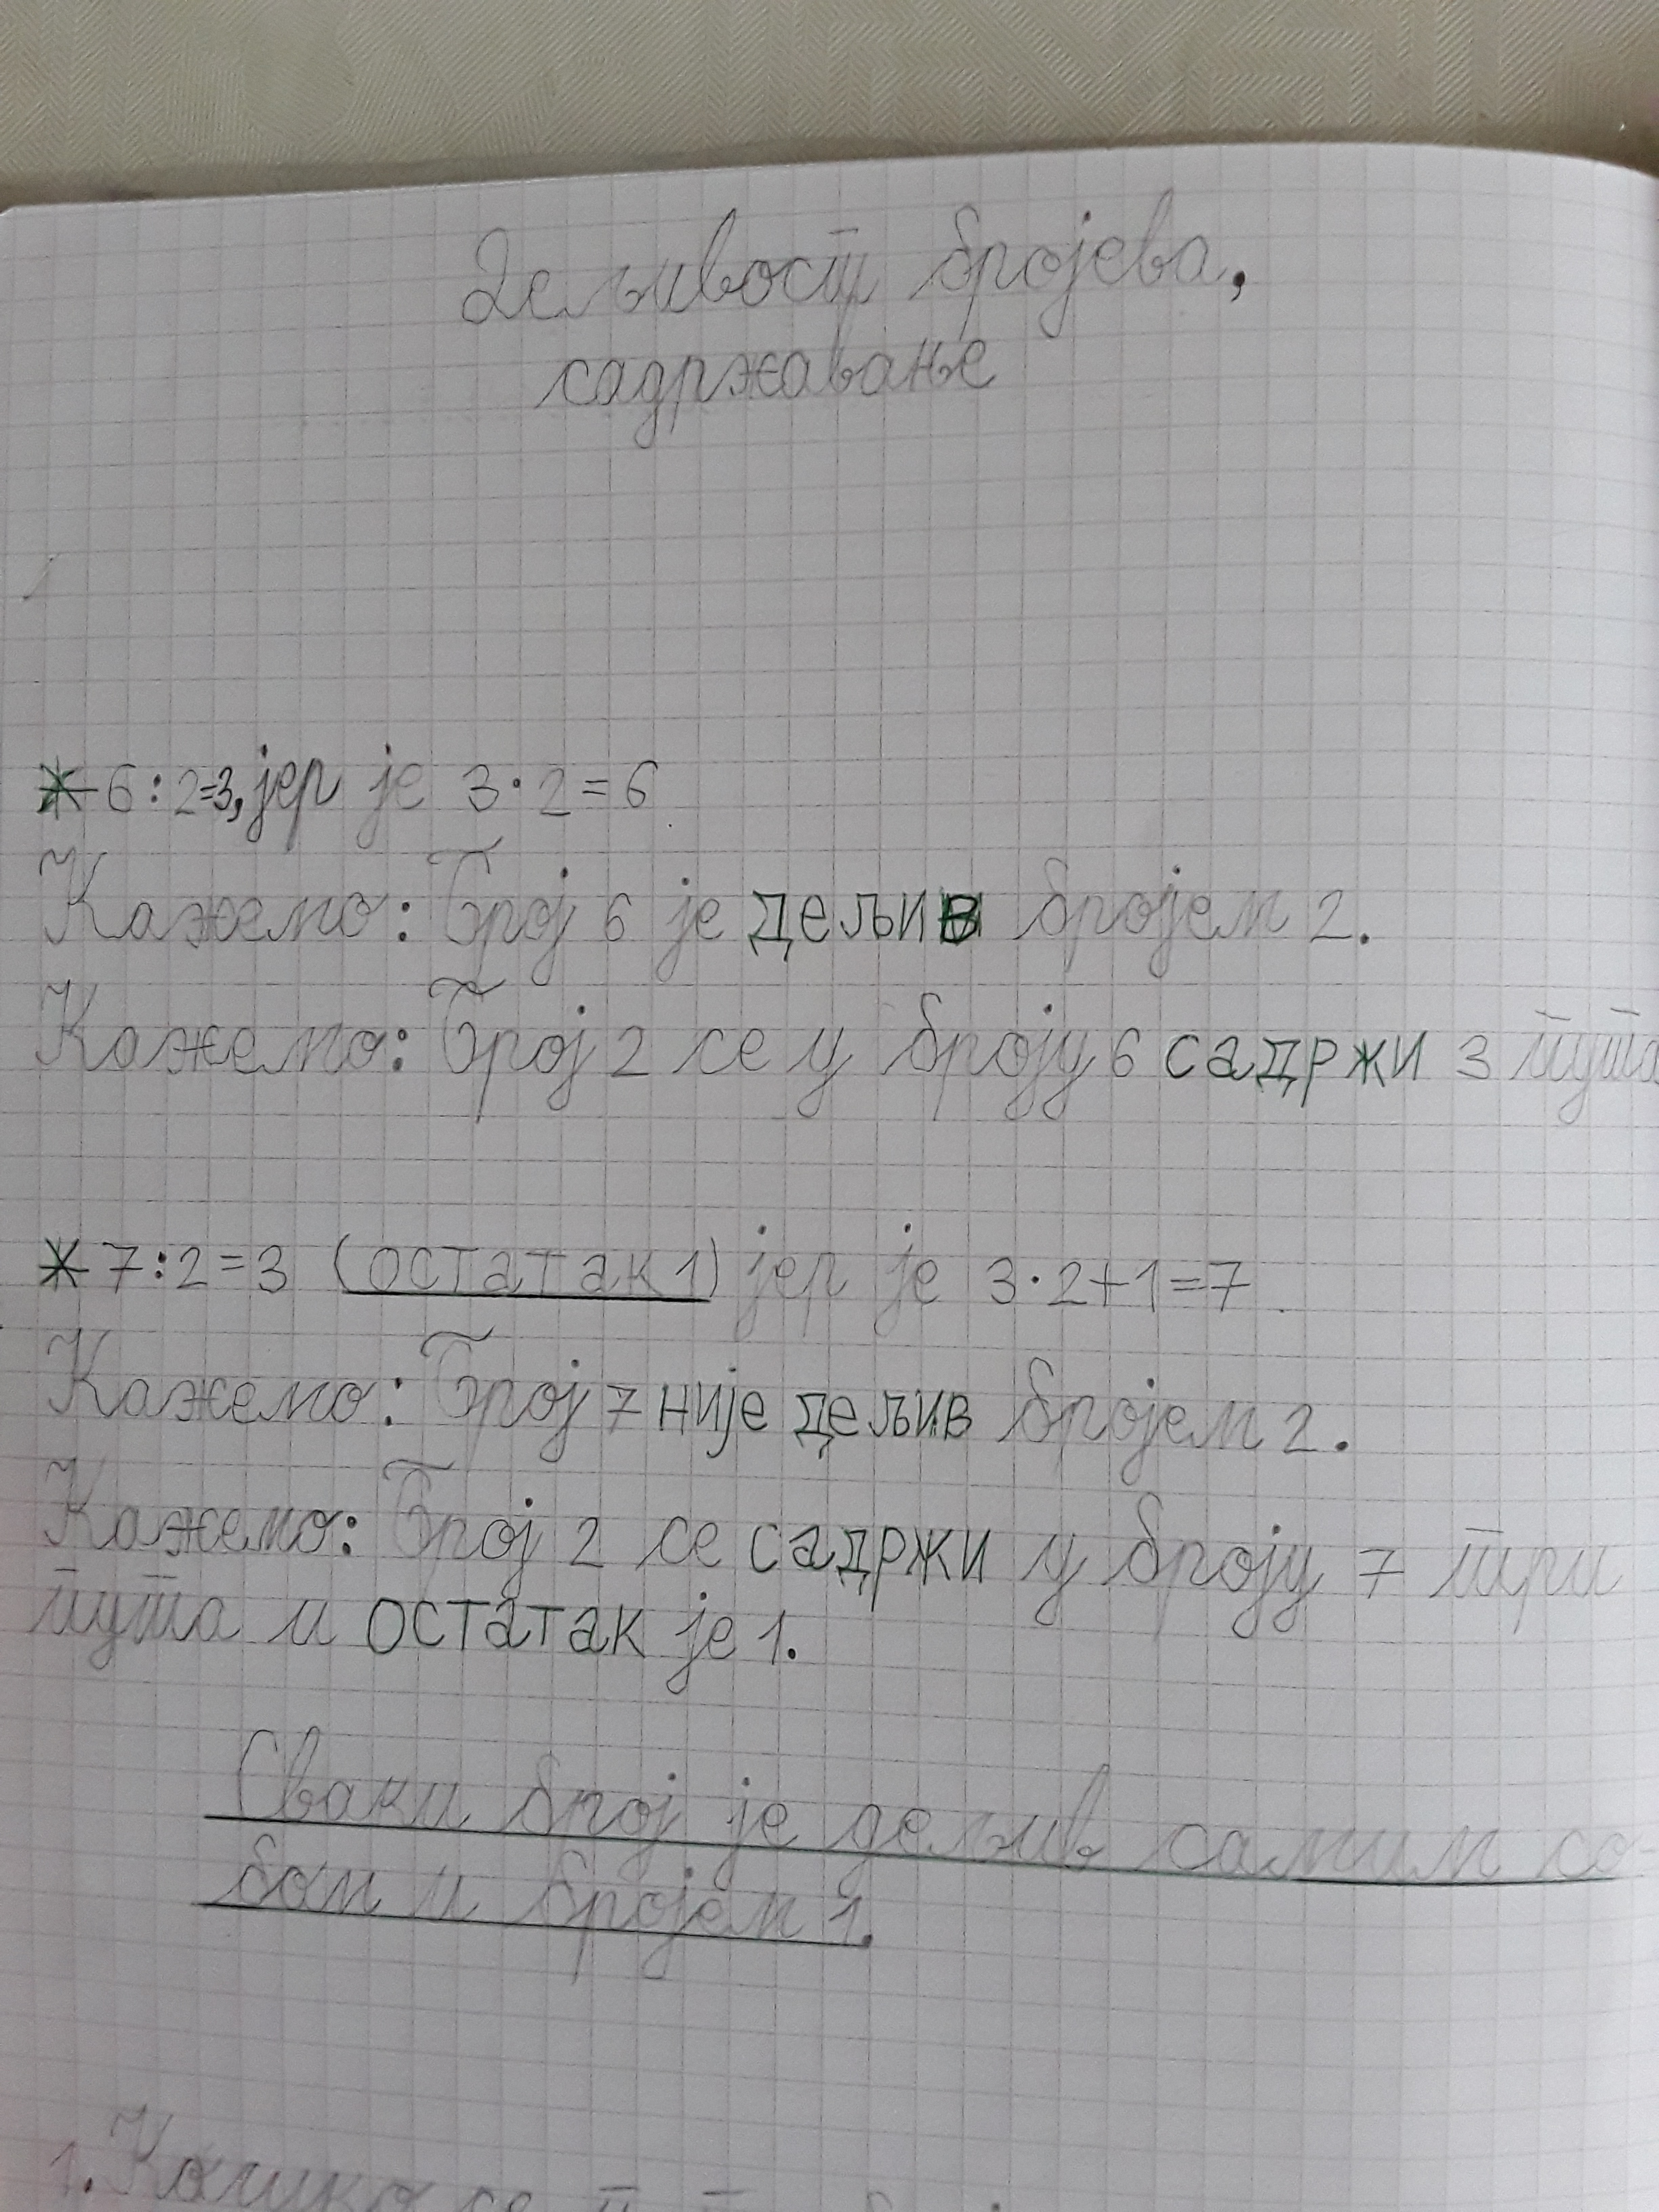 Дељивост бројева,
садржавање
* 6:2=3, јер је 3·2=6
Кажемо: Број 6 је дељив бројем 2.
Кажемо: Број 2 се у броју 6 садржи 3 пута
* 7:2=3 (остатак 1) јер је 3·2+1=7
Кажемо: Број 7 није дељив бројем 2.
Кажемо: Број 2 се садржи у броју 7 три
пута и остатак је 1.
Сваки број је дељив самим со-
бом и бројем 1.
1. Колико се